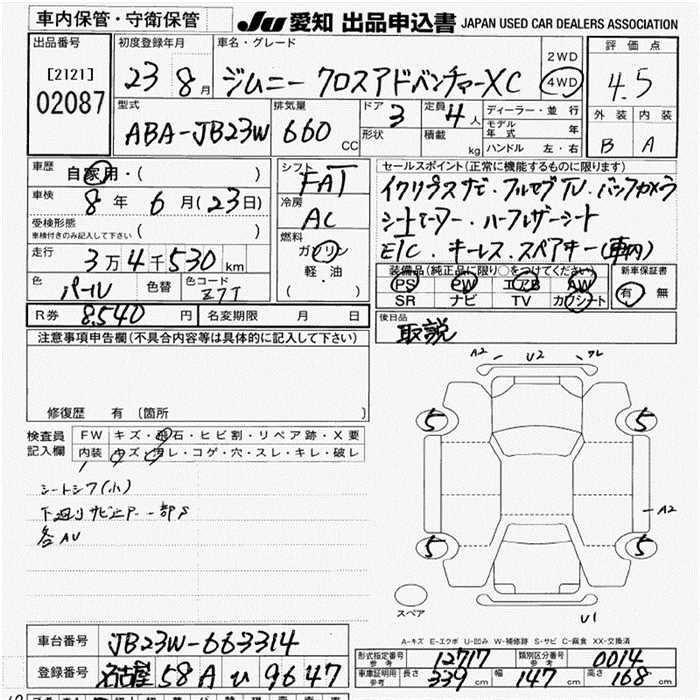 車内保管・守衛保管
JU 愛知 出品申込書 JAPAN USED CAR DEALERS ASSOCIATION
出品番号
[2121]
02087
初度登録年月
23 8月
車名・グレード
ジムニー クロスアドベンチャーXC
2WD
4WD
評価点
4.5
外装 内装
B A
型式
ABA-JB23W
排気量
660 CC
ドア 3
形状
定員 4人
積載 kg
ディーラー・並行
モデル年式 年
ハンドル 左・右
車歴 自家用・( )
車検 8年 6月(23日)
受検形態
車検付きのみ記入して下さい ( )
走行 3万4千530km
色 パール 色替 色コード Z7T
シフト
FAT
冷房
AC
燃料
ガソリン
軽・油
( )
セールスポイント(正常に機能するものに限ります)
イクリプスナビ・フルセグTV・バックカメラ
シートヒーター・ハーフレザーシート
ETC・キーレス・スペアキー(車内)
装備品(純正品に限り○をつけてください)
PS PW エアB AW
SR ナビ TV カワシート
新車保証書
有 無
R券 8,540円 名変期限 月 日
後日品
取説
注意事項申告欄(不具合内容等は具体的に記入して下さい)
修復歴 有(箇所 )
検査員記入欄
FW キズ・飛石・ヒビ割・リペア跡・X要
内装 キズ・汚レ・コゲ・穴・スレ・キレ・破レ
シートシワ(小)
下廻りサビ止P 一部S
各AU
A2 U2
5 5
A2
5 5
U1
スペア
A-キズ E-エクボ U-凹み W-補修跡 S-サビ C-腐食 XX-交換済
車台番号 JB23W-663314
登録番号 名古屋 58A い 9647
形式指定番号参考 12717 類別区分番号参考 0014
車庫証明用参考 長さ 339cm 幅 147cm 高さ 168cm